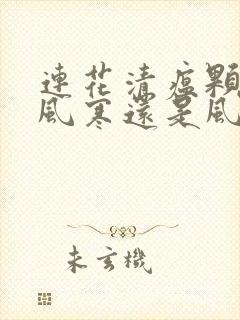 連花清瘟顆
風寒還是風
未玄機